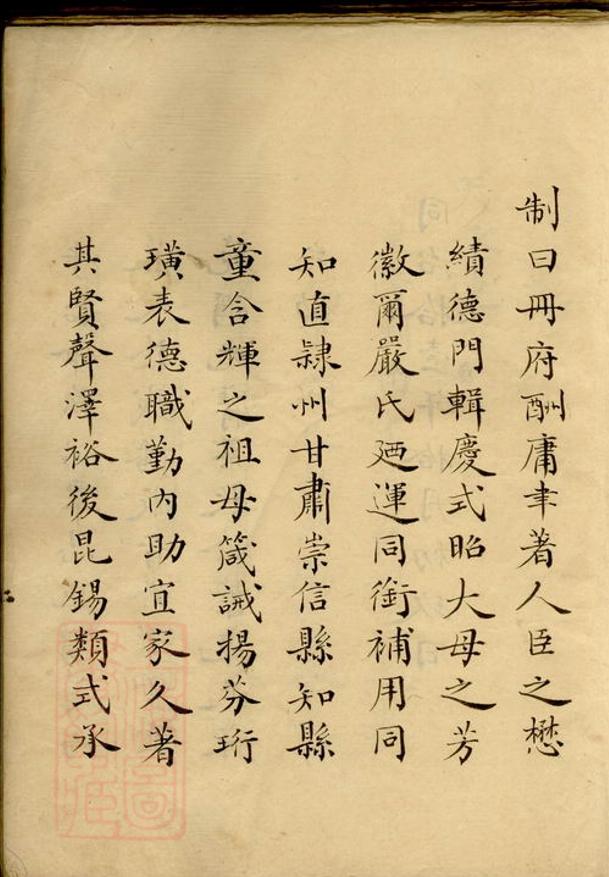 制曰冊府酬庸聿著人臣之懋
績德門輯慶式昭大母之芳
徽爾嚴氏廼運同銜補用同
知直隸州甘肅崇信縣知縣
童含輝之祖母箴誡揚芬珩
璜表德職勤內助宜家久著
其賢聲澤裕後昆錫類式承